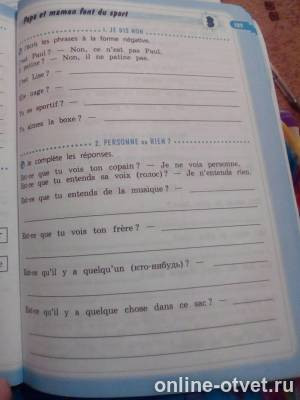 Papa et maman font du sport
1. JE DIS NON
les phrases à la forme négative.
Paul? — Non, ce n'est pas Paul.
patine? — Non, il ne patine pas.
Line? —
nage? —
Tu es sportif? —
Tu aimes la boxe? —
2. PERSONNE ou RIEN?
Je complète les réponses.
Est-ce que tu vois ton copain? — Je ne vois personne.
Est-ce que tu entends sa voix (голос)? — Je n'entends rien.
Est-ce que tu entends de la musique? —
Est-ce que tu vois ton frère? —
Est-ce qu'il y a quelqu'un (кто-нибудь)? —
Est-ce qu'il y a quelque chose dans ce sac? —
online-otvet.ru